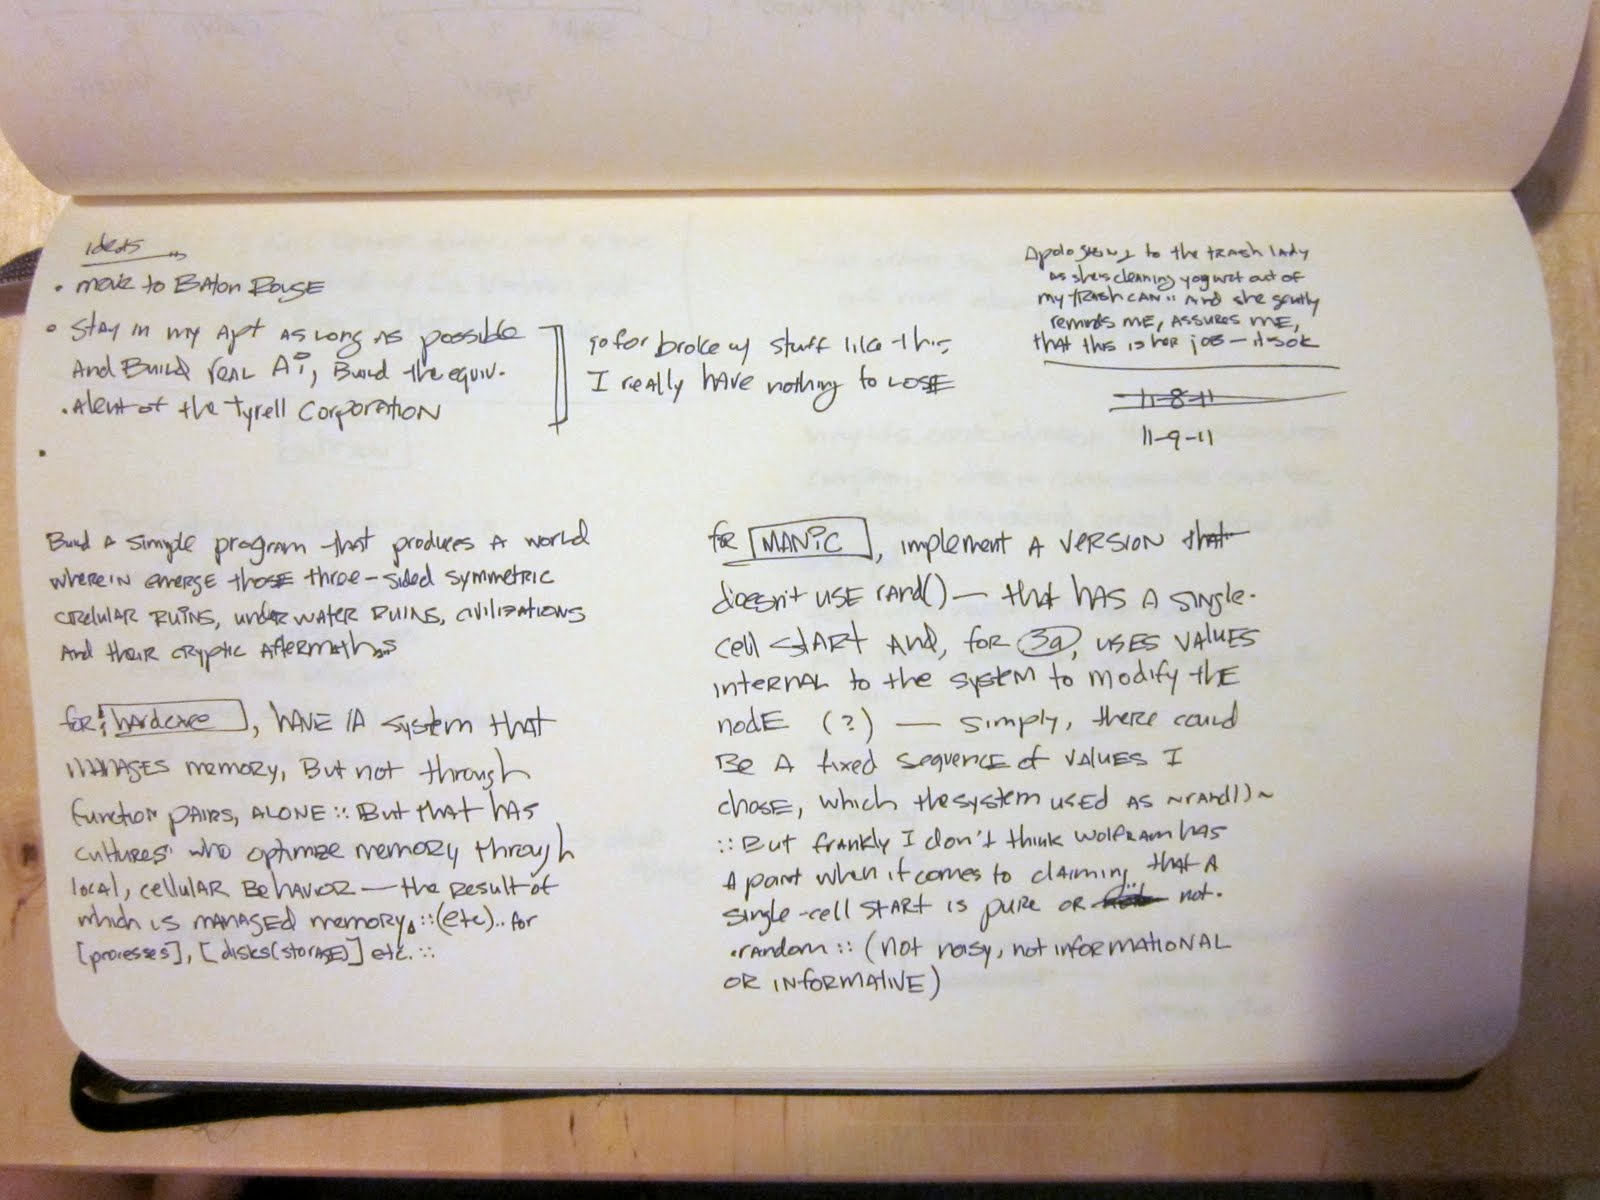 ideas
• move to Baton Rouge
• Stay in my Apt as long as possible
And Build real Ai, Build the equiv.
• Alent of the Tyrell Corporation
•
go for broke w/ stuff like this,
I really have nothing to lose
Apologizing to the trash lady
as she's cleaning yogurt out of
my trash can :: And she gently
reminds me, assures me,
that this is her job — it's ok
11-8-11
11-9-11
Build a simple program that produces a world
wherein emerge those three-sided symmetric
circular ruins, underwater ruins, civilizations
and their cryptic aftermaths
for hardcare, have a system that
manages memory, But not through
function pairs, alone :: But that has
cultures who optimize memory through
local, cellular behavior — the result of
which is managed memory. ::(etc).. for
[processes], [disks(storage)] etc. ::
for MANiC, implement a version that
doesn't use rand() — that has a single-
cell start and, for 3a, uses values
internal to the system to modify the
node (?) — simply, there could
be a fixed sequence of values I
chose, which the system used as ~rand()~
:: But frankly I don't think Wolfram has
a point when it comes to claiming that a
single-cell start is pure or not.
random :: (not noisy, not informational
or informative)